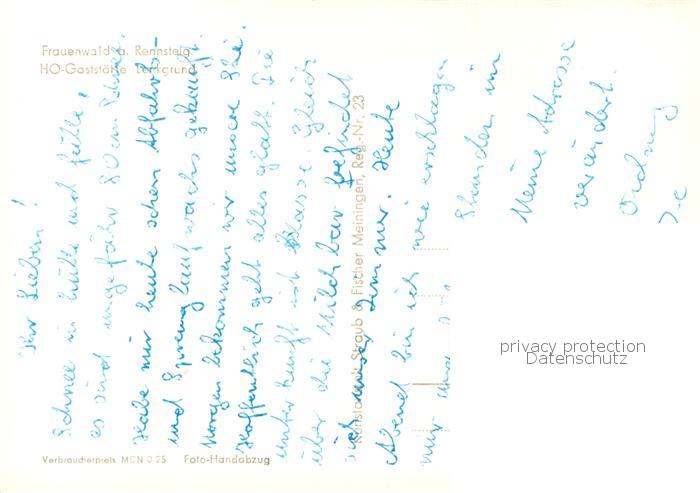 Frauenwald a. Rennsteig
HO-Gaststätte Lenkgrund
Ihr Lieben!
Schnee in hülle und fülle,
es sind ungefähr 80 cm Schnee.
Habe mir heute schon Abfahrts-
und Sprunglaufwachs gekauft.
Morgen bekommen wir unsere Ski.
Hoffentlich geht alles glatt. Die
Unterkunft ist Klasse. Gleich
über die Milchbar befindet
sich unser Zimmer. Heute
Abend bin ich wie erschlagen
nur und
Stunden im
Meine Adresse
verändert.
Ordnung
Kunstanstalt Straub & Fischer Meiningen, Reg.-Nr. 23
Verbraucherpreis MDN 0.25 Foto-Handabzug
privacy protection
Datenschutz